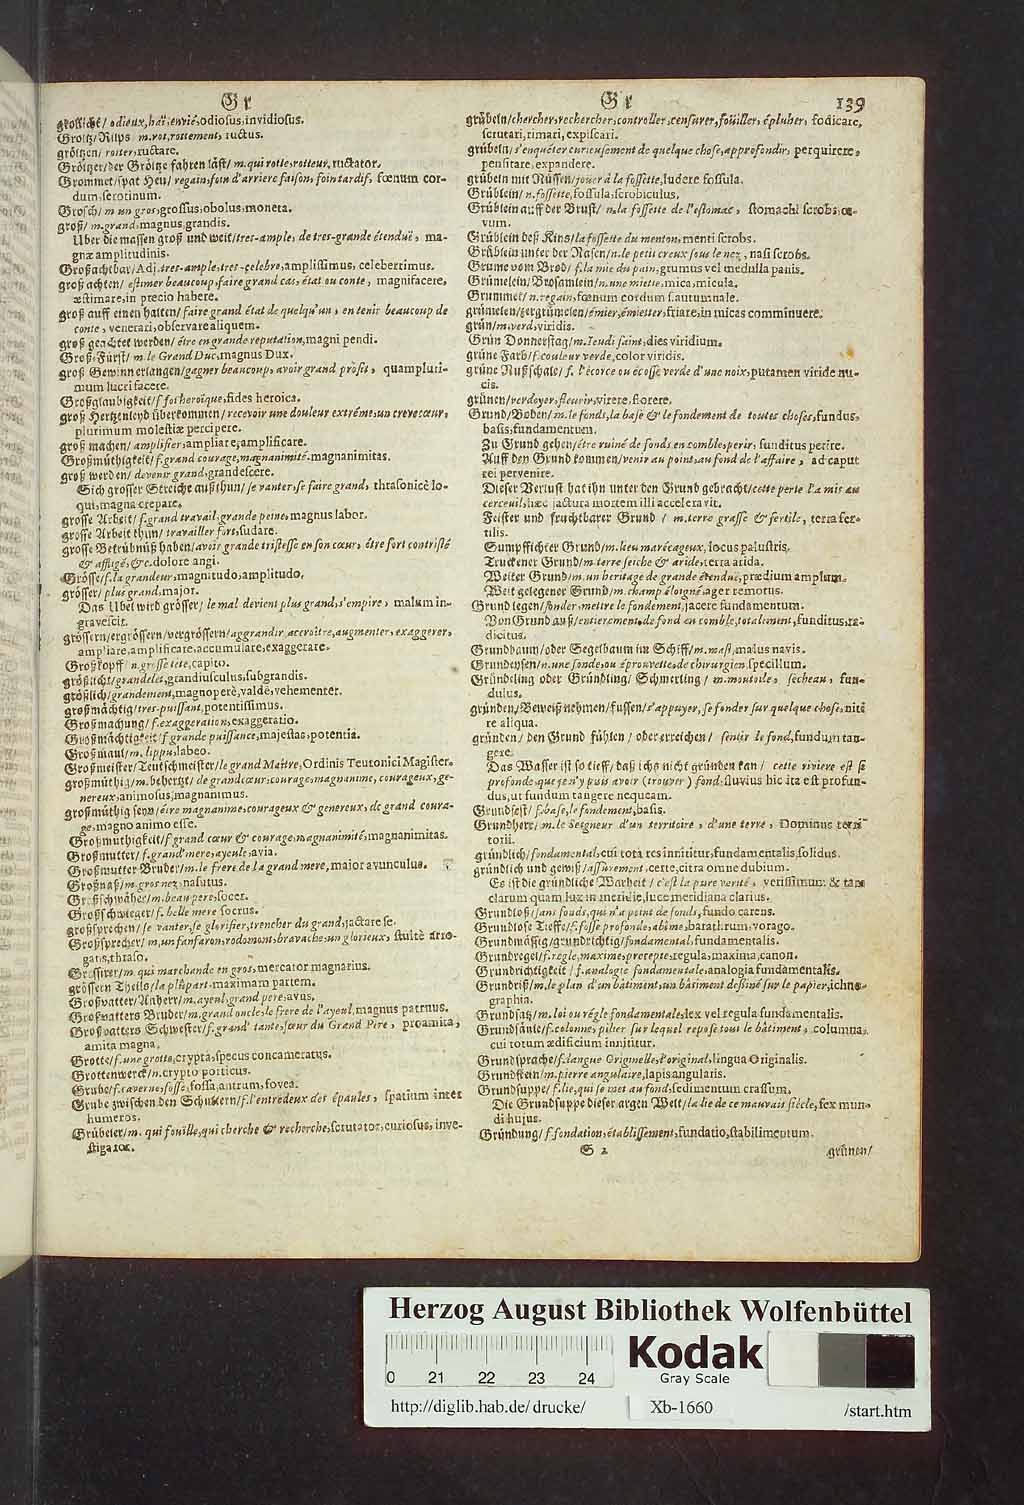 Gr
Gr 139
grollicht/ odieux, haï, envié, odiosus, invidiosus.
Groltz/ Rülps m. rot, rottement, ructus.
gröltzen/ rotter, ructare.
Gröltzer/ der Gröltze fahren läst/ m. qui rotte, rotteur, ructator.
Grommet/ spat Heu/ regain, foin d'arriere saison, foin tardif, fœnum cor-
dum, serotinum.
Grosch/ m un gros, grossus, obolus, moneta.
groß/ m. grand, magnus, grandis.
Uber die massen groß und weit/ tres-ample, de tres-grande étenduë, ma-
gnæ amplitudinis.
Großachtbar/ Adj. tres-ample, tres-celebre, amplissimus, celeberrimus.
groß achten/ estimer beaucoup, faire grand cas, état ou conte, magnifacere,
æstimare, in precio habere.
groß auff einen halten/ faire grand état de quelqu'un, en tenir beaucoup de
conte, venerari, observare aliquem.
groß geachtet werden/ étre en grande reputation, magni pendi.
Groß-Fürst/ m. le Grand Duc, magnus Dux.
groß Gewinn erlangen/ gagner beaucoup, avoir grand profit, quampluri-
mum lucri facere.
Großglaubigkeit/ f foi heroïque, fides heroica.
groß Hertzenleyd überkommen/ recevoir une douleur extréme, un crevecœur,
plurimum molestiæ percipere.
groß machen/ amplifier, ampliare, amplificare.
Großmüthigkeit/ f. grand courage, magnanimité, magnanimitas.
groß werden/ devenir grand, grandescere.
Sich grosser Streiche außthun/ se vanter, se faire grand, thrasonicè lo-
qui, magna crepare.
grosse Arbeit/ f. grand travail, grande peine, magnus labor.
grosse Arbeit thun/ travailler fort, sudare.
grosse Betrübnüß haben/ avoir grande tristesse en son cœur, étre fort contristé
& affligé, &c. dolore angi.
Grösse/ f. la grandeur, magnitudo, amplitudo.
grösser/ plus grand, major.
Das Ubel wird grösser/ le mal devient plus grand, s'empire, malum in-
gravescit.
grössern/ ergrössern/ vergrössern/ aggrandir, accroître, augmenter, exaggerer,
ampliare, amplificare, accumulare, exaggerare.
Großkopff/ n. grosse tete, capito.
größlicht/ grandelet, grandiusculus, subgrandis.
größlich/ grandement, magnoperè, valdè, vehementer.
großmächtig/ tres-puissant, potentissimus.
Großmachung/ f. exaggeration, exaggeratio.
Großmächtigkeit/ f grande puissance, majestas, potentia.
Großmaul/ m. lippu, labeo.
Großmeister/ Teutschmeister/ le grand Maître, Ordinis Teutonici Magister.
großmüthig/ m. behertzt/ de grand cœur, courage, magnanime, courageux, ge-
nereux, animosus, magnanimus.
großmüthig seyn/ étre magnanime, courageux & genereux, de grand coura-
ge, magno animo esse.
Großmüthigkeit/ f grand cœur & courage, magnanimité, magnanimitas.
Großmutter/ f. grand'mere, ayeule, avia.
Großmutter Bruder/ m. le frere de la grand mere, maior avunculus.
Großnaß/ m. gros nez, nasutus.
Großschwäher/ m. beau pere, socer.
Großschwieger/ f. belle mere socrus.
großsprechen/ se vanter, se glorifier, trencher du grand, jactare se.
Großsprecher/ m. un fanfaron, rodomont, bravache, un glorieux, stultè arro-
gans, thraso.
Grossirer/ m. qui marchande en gros, mercator magnarius.
grössern Theils/ la plûpart, maximam partem.
Großvatter/ Anherr/ m. ayeul, grand pere, avus.
Großvatters Bruder/ m. grand oncle, le frere de l'ayeul, magnus patruus.
Großvatters Schwester/ f. grand' tante, sœur du Grand Pére, proamita,
amita magna.
Grotte/ f. une grotte, crypta, specus concameratus.
Grottenwerck/ n. crypto porticus.
Grube/ f. caverne, fosse, fossa, antrum, fovea.
Grube zwischen den Schultern/ f. l'entredeux des épaules, spatium inter
humeros.
Grübeler/ m. qui fouille, qui cherche & recherche, scrutator, curiosus, inve-
stigator.
grübeln/ chercher, rechercher, controller, censurer, foüiller, éplucher, fodicare,
scrutari, rimari, expiscari.
grübeln/ s'enquéter curieusement de quelque chose, approfondir, perquirere,
pensitare, expandere.
grübeln mit Nüssen/ jouer à la fossette, ludere fossula.
Grüblein/ n. fossette, fossula, scrobiculus.
Grüblein auff der Brust/ n. la fossette de l'estomac, stomachi scrobs, ca-
vum.
Grüblein deß Kins/ la fossette du menton, menti scrobs.
Grüblein unter der Nasen/ n. le petit creux sous le nez, nasi scrobs.
Grume vom Brod/ f. la mie du pain, grumus vel medulla panis.
Grümelein/ Brosamlein/ n. une miette, mica, micula.
Grummet/ n. regain, fœnum cordum s. autumnale.
grümelen/ zergrümelen/ émier, émietter, friare, in micas comminuere.
grün/ m. verd, viridis.
Grün Donnerstag/ m. Jeudi saint, dies viridium.
grüne Farb/ f. couleur verde, color viridis.
grüne Nußschale/ f. l'écorce ou écosse verde d'une noix, putamen viride nu-
cis.
grünen/ verdoyer, fleurir, virere, florere.
Grund/ Boden/ m. le fonds, la base & le fondement de toutes choses, fundus,
basis, fundamentum.
Zu Grund gehen/ étre ruiné de fonds en comble, perir, funditus perire.
Auff den Grund kommen/ venir au point, au fond de l'affaire, ad caput
rei pervenire.
Dieser Verlust hat ihn unter den Grund gebracht/ cette perte l'a mis au
cercueil, hæc jactura mortem illi acceleravit.
Feister und fruchtbarer Grund/ m. terre grasse & fertile, terra fer-
tilis.
Sumpffichter Grund/ m. lieu marécageux, locus palustris.
Truckener Grund/ m. terre seiche & aride, terra arida.
Weiter Grund/ m. un heritage de grande étenduë, prædium amplum.
Weit gelegener Grund/ m. champ éloigné, ager remotus.
Grund legen/ fonder, mettre le fondement, jacere fundamentum.
Von Grund auß/ entierement, de fond en comble, totalement, funditus, ra-
dicitus.
Grundbaum/ oder Segelbaum im Schiff/ m. mast, malus navis.
Grundeysen/ n. une sonde, ou éprouvette, de chirurgien, specillum.
Gründeling oder Gründling/ Schmerling/ m. moutoile, sécheau, fun-
dulus.
gründen/ Beweiß nehmen/ fussen/ s'appuyer, se fonder sur quelque chose, niti
re aliqua.
gründen/ den Grund fühlen/ oder erreichen/ sentir le fond, fundum tan-
gere.
Das Wasser ist so tieff/ daß ichs nicht gründen kan/ cette riviere est si
profonde, que je n'y puis avoir (trouver) fond, fluvius hic ita est profun-
dus, ut fundum tangere nequeam.
Grundfest/ f. base, le fondement, basis.
Grundherr/ m. le Seigneur d'un territoire, d'une terre, Dominus terri-
torii.
gründlich/ fondamental, cui tota res innititur, fundamentalis, solidus.
gründlich und gewiß/ assurement, certe, citra omne dubium.
Es ist die gründliche Warheit/ c'est la pure verité, verissimum & tam
clarum quam lux in meridie, luce meridiana clarius.
Grundloß/ sans fonds, qui n'a point de fonds, fundo carens.
Grundlose Tieffe/ f. fosse profonde, abîme, barathrum, vorago.
Grundmässig/ grundrichtig/ fondamental, fundamentalis.
Grundregel/ f. regle, maxime, precepte, regula, maxima, canon.
Grundrichtigkeit/ f. analogie fondamentale, analogia fundamentalis.
Grundriß/ m. le plan d'un bâtiment, un bâtiment dessiné sur le papier, ichno-
graphia.
Grundsatz/ m. loi ou régle fondamentale, lex vel regula fundamentalis.
Grundsäule/ f. colonne, pilier sur lequel repose tout le bâtiment, columna,
cui totum ædificium innititur.
Grundsprache/ f. langue Originelle, l'original, lingua Originalis.
Grundstein/ m. pierre angulaire, lapis angularis.
Grundsuppe/ f. lie, qui se met au fond, sedimentum crassum.
Die Grundsuppe dieser argen Welt/ la lie de ce mauvais siécle, fex mun-
di hujus.
Gründung/ f. fondation, établissement, fundatio, stabilimentum.
S 2
grünen/
Herzog August Bibliothek Wolfenbüttel
0 21 22 23 24
Kodak
Gray Scale
http://diglib.hab.de/ drucke/ Xb-1660 /start.htm